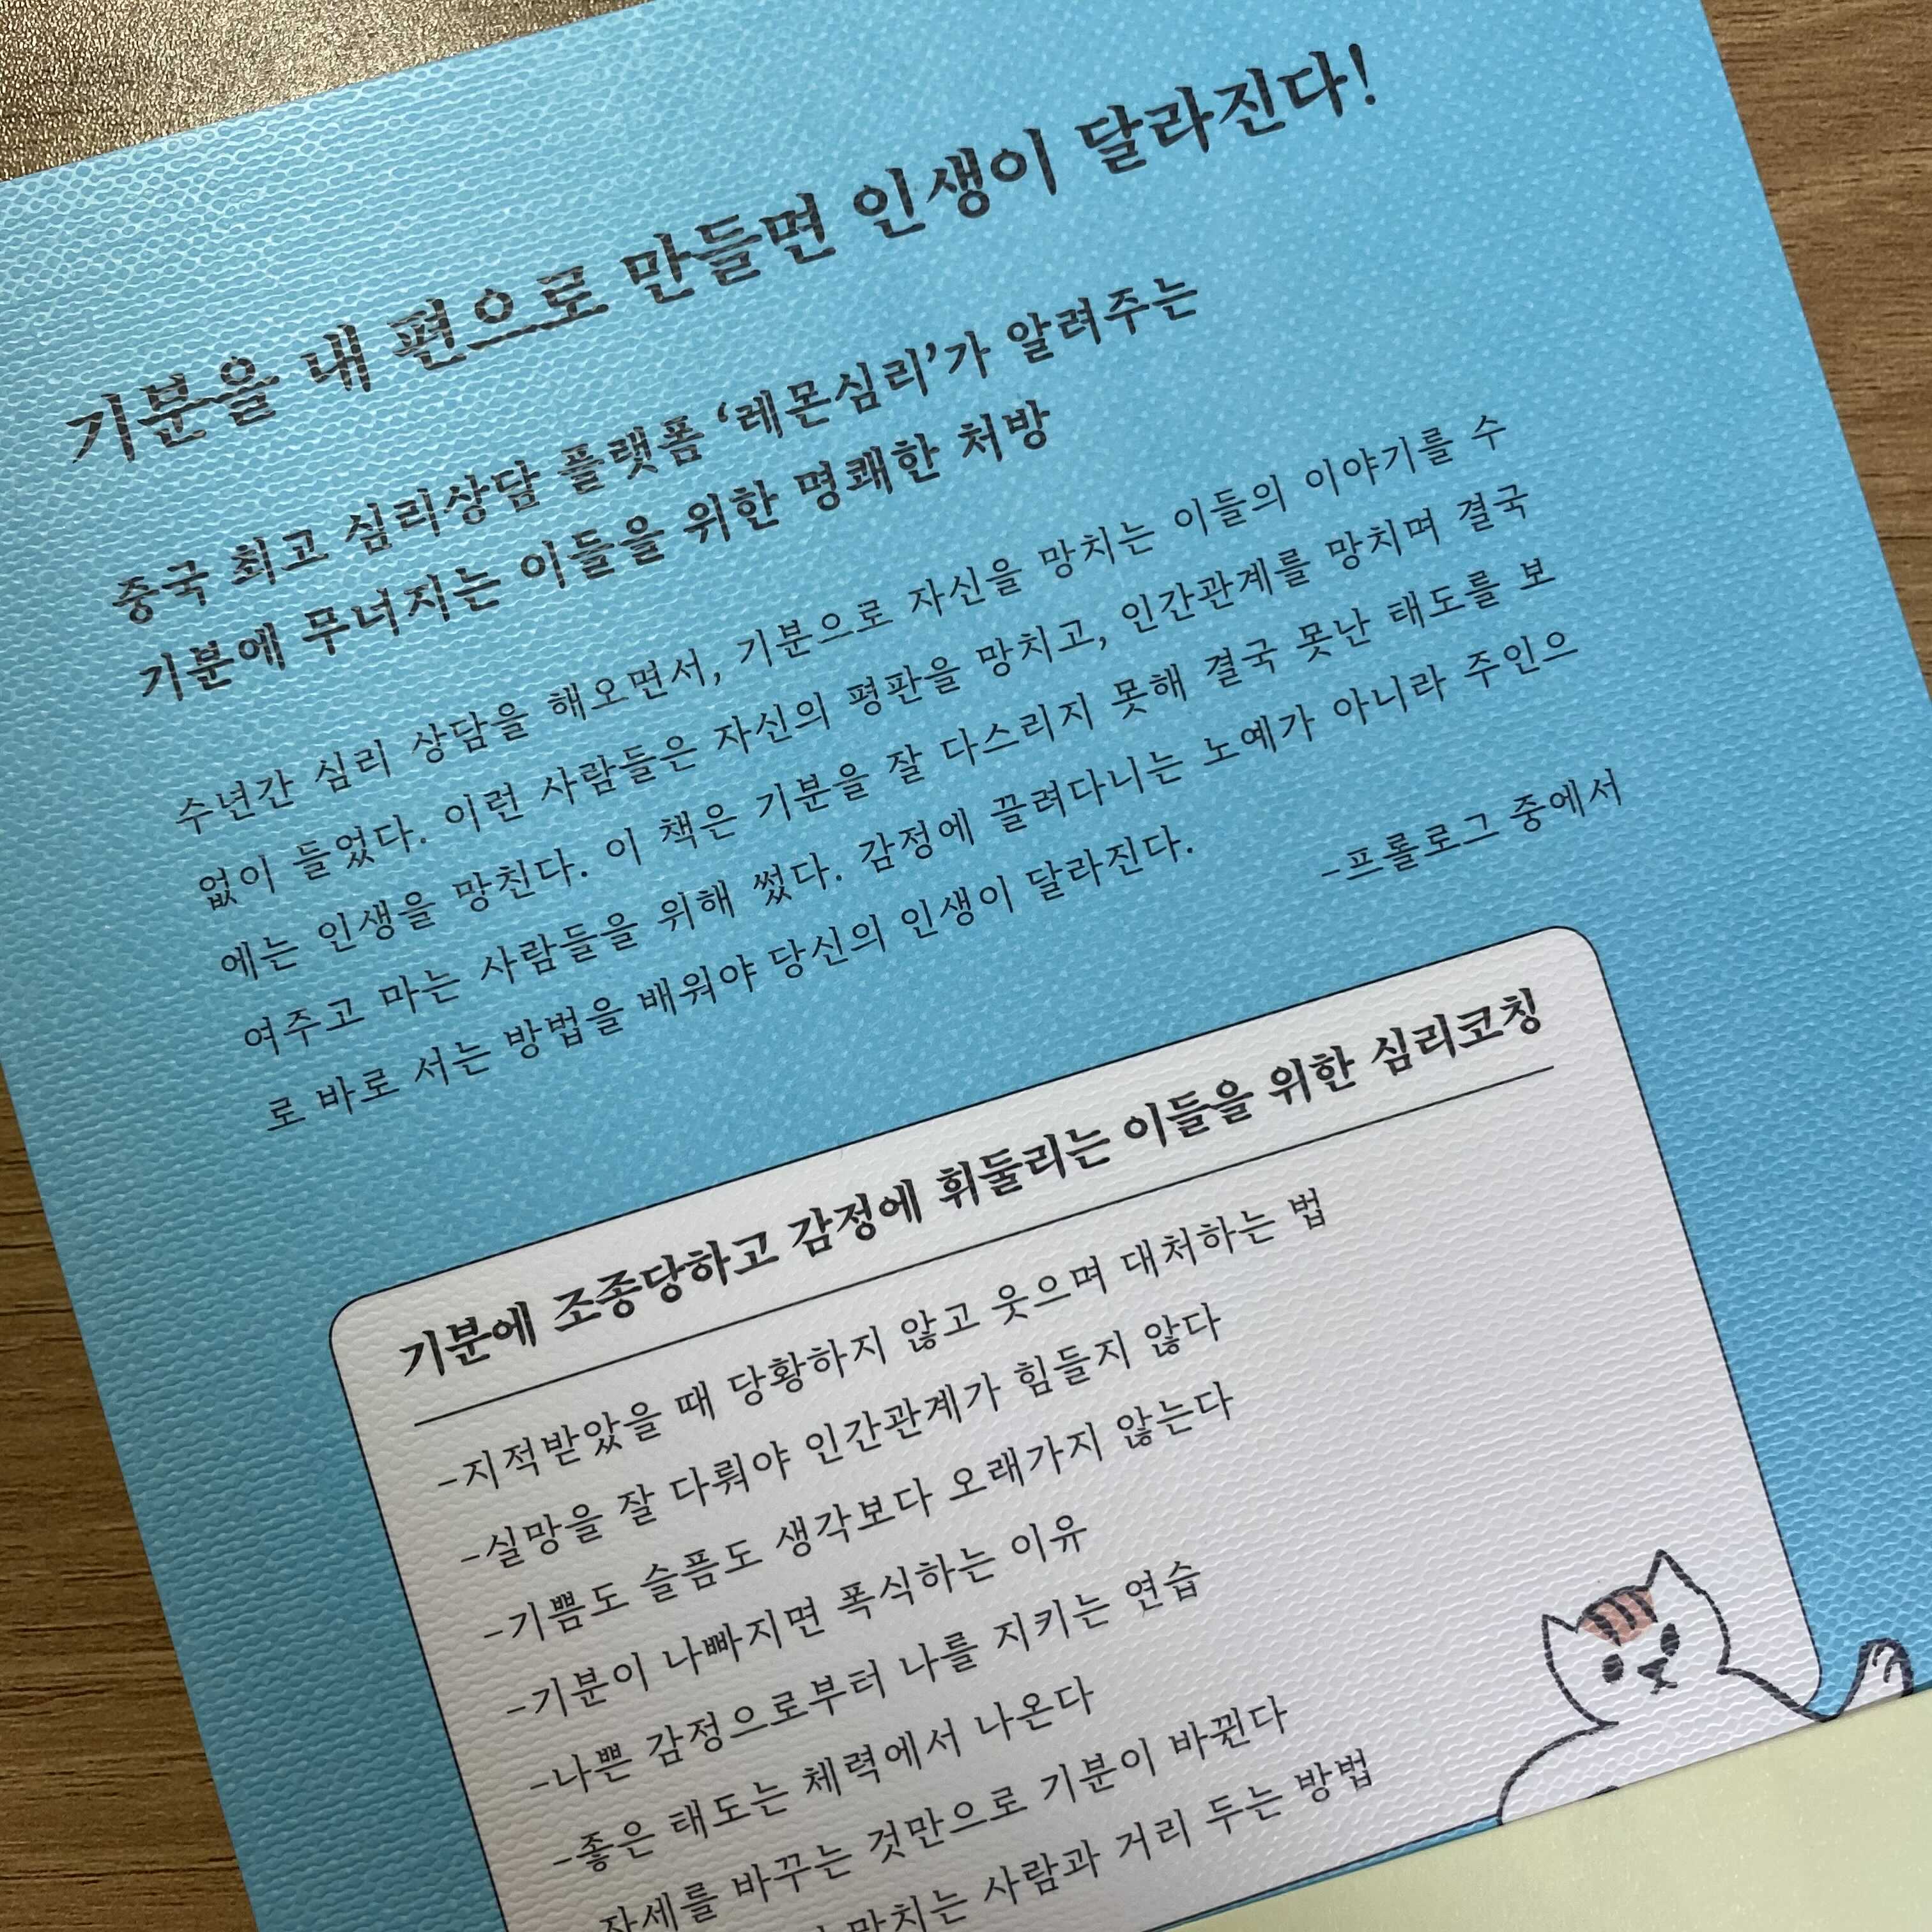 기분을 내 편으로 만들면 인생이 달라진다!
중국 최고 심리상담 플랫폼 ‘레몬심리’가 알려주는
기분에 무너지는 이들을 위한 명쾌한 처방
수년간 심리 상담을 해오면서, 기분으로 자신을 망치는 이들의 이야기를 수
없이 들었다. 이런 사람들은 자신의 평판을 망치고, 인간관계를 망치며 결국
에는 인생을 망친다. 이 책은 기분을 잘 다스리지 못해 결국 못난 태도를 보
여주고 마는 사람들을 위해 썼다. 감정에 끌려다니는 노예가 아니라 주인으
로 바로 서는 방법을 배워야 당신의 인생이 달라진다.
-프롤로그 중에서
기분에 조종당하고 감정에 휘둘리는 이들을 위한 심리코칭
-지적받았을 때 당황하지 않고 웃으며 대처하는 법
-실망을 잘 다뤄야 인간관계가 힘들지 않다
-기쁨도 슬픔도 생각보다 오래가지 않는다
-기분이 나빠지면 폭식하는 이유
-나쁜 감정으로부터 나를 지키는 연습
-좋은 태도는 체력에서 나온다
자세를 바꾸는 것만으로 기분이 바뀐다
망치는 사람과 거리 두는 방법